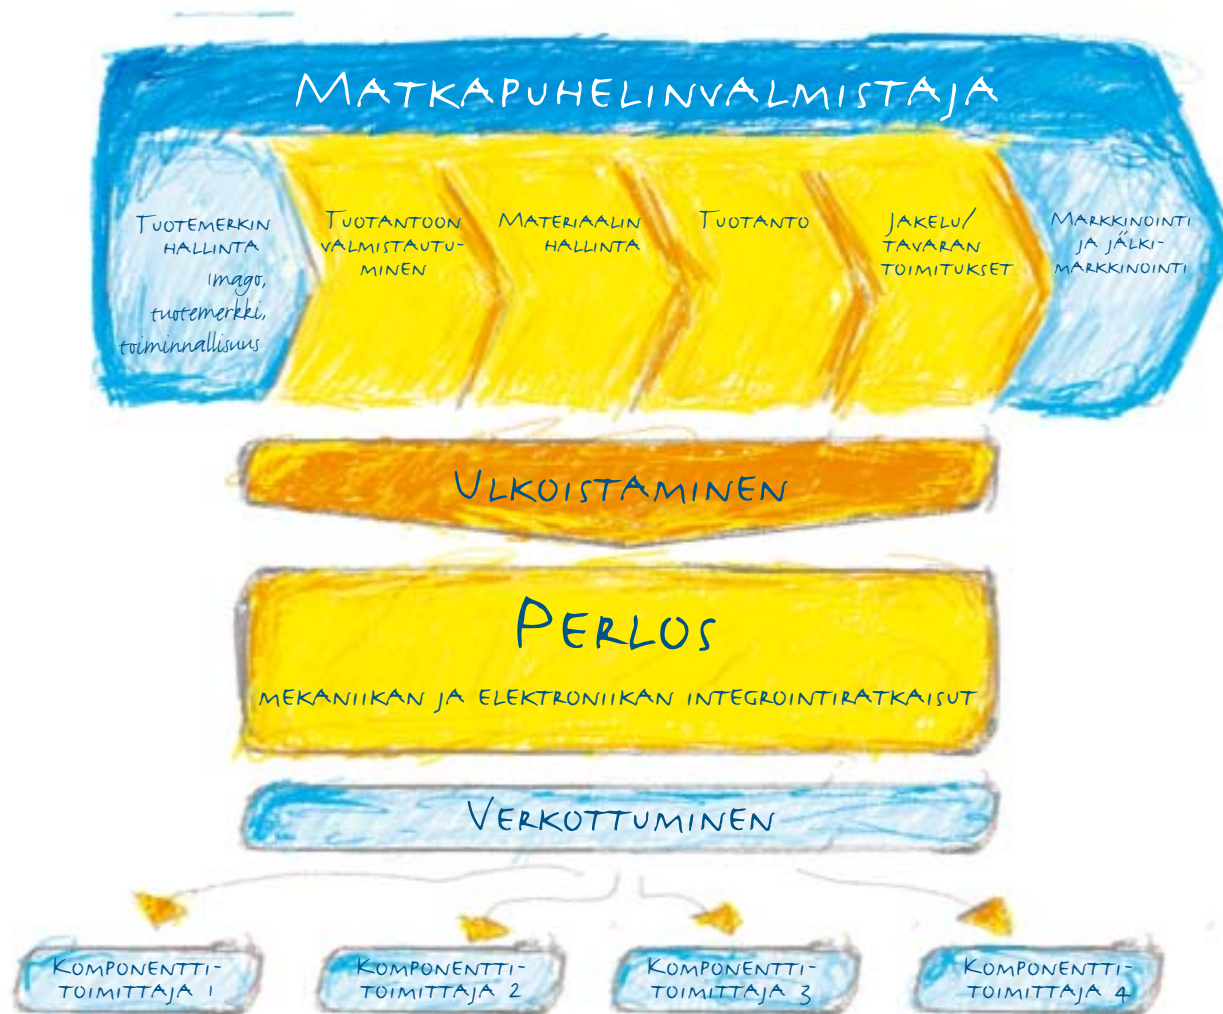 MATKAPUHELINVALMISTAJA
TUOTEMERKIN
HALLINTA
Imago,
tuotemerkki,
toiminnallisuus
TUOTANTOON
VALMISTAUTU-
MINEN
MATERIAALIN
HALLINTA
TUOTANTO
JAKELU/
TAVARAN
TOIMITUKSET
MARKKINOINTI
JA JÄLKI-
MARKKINOINTI
ULKOISTAMINEN
PERLOS
MEKANIIKAN JA ELEKTRONIIKAN INTEGROINTIRATKAISUT
VERKOTTUMINEN
KOMPONENTTI-
TOIMITTAJA 1
KOMPONENTTI-
TOIMITTAJA 2
KOMPONENTTI-
TOIMITTAJA 3
KOMPONENTTI-
TOIMITTAJA 4